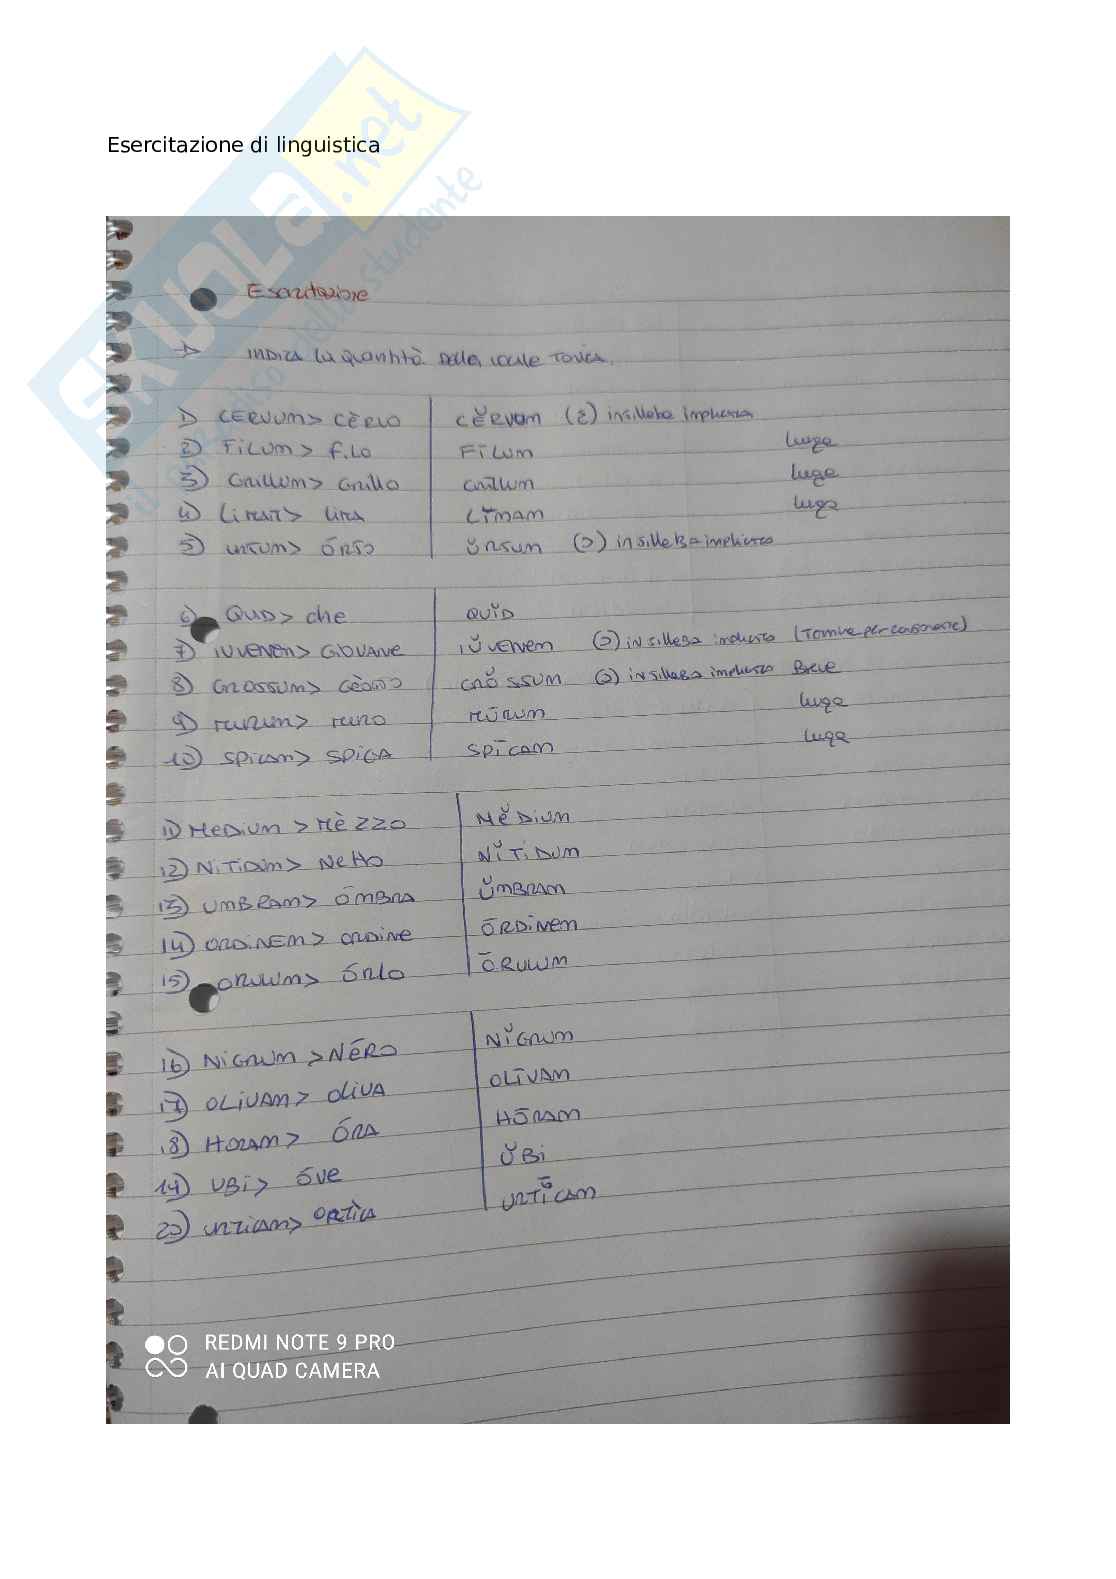 Esercitazione di linguistica
SKUOLA.net
il lato della studente
Esercitazione
→ INDICA la quantità della vocale TONICA.
1) CERVUM > CÈRVO CĔRVUM (ɛ) in sillaba implicata
2) FILUM > FiLO FĪLUM lunga
3) GRILLUM > GRILLO GRĪLLUM lunga
4) LIMAM > LIMA LĪMAM lunga
5) URSUM > ÓRSO ŬRSUM (ɔ) in sillaba implicata
6) QUID > che QUĬD
7) IUVENEM > GIOVANE IŬVENEM (ɔ) in sillaba implicata (Termina per consonante)
8) GROSSUM > GRÒSSO GRŎSSUM (ɔ) in sillaba implicata Breve
9) MURUM > MURO MŪRUM lunga
10) SPICAM > SPIGA SPĪCAM lunga
11) MEDIUM > MÈZZO MĔDIUM
12) NITIDUM > NETTO NĬTIDUM
13) UMBRAM > ÓMBRA ŬMBRAM
14) ORDINEM > ORDINE ŌRDINEM
15) ORULUM > ÓRLO ŌRULUM
16) NIGRUM > NÉRO NĬGRUM
17) OLIVAM > OLIVA OLĪVAM
18) HORAM > ÓRA HŌRAM
19) UBI > ÓVE ŬBI
20) URTICAM > ORTÌCA URTĪCAM
REDMI NOTE 9 PRO
AI QUAD CAMERA